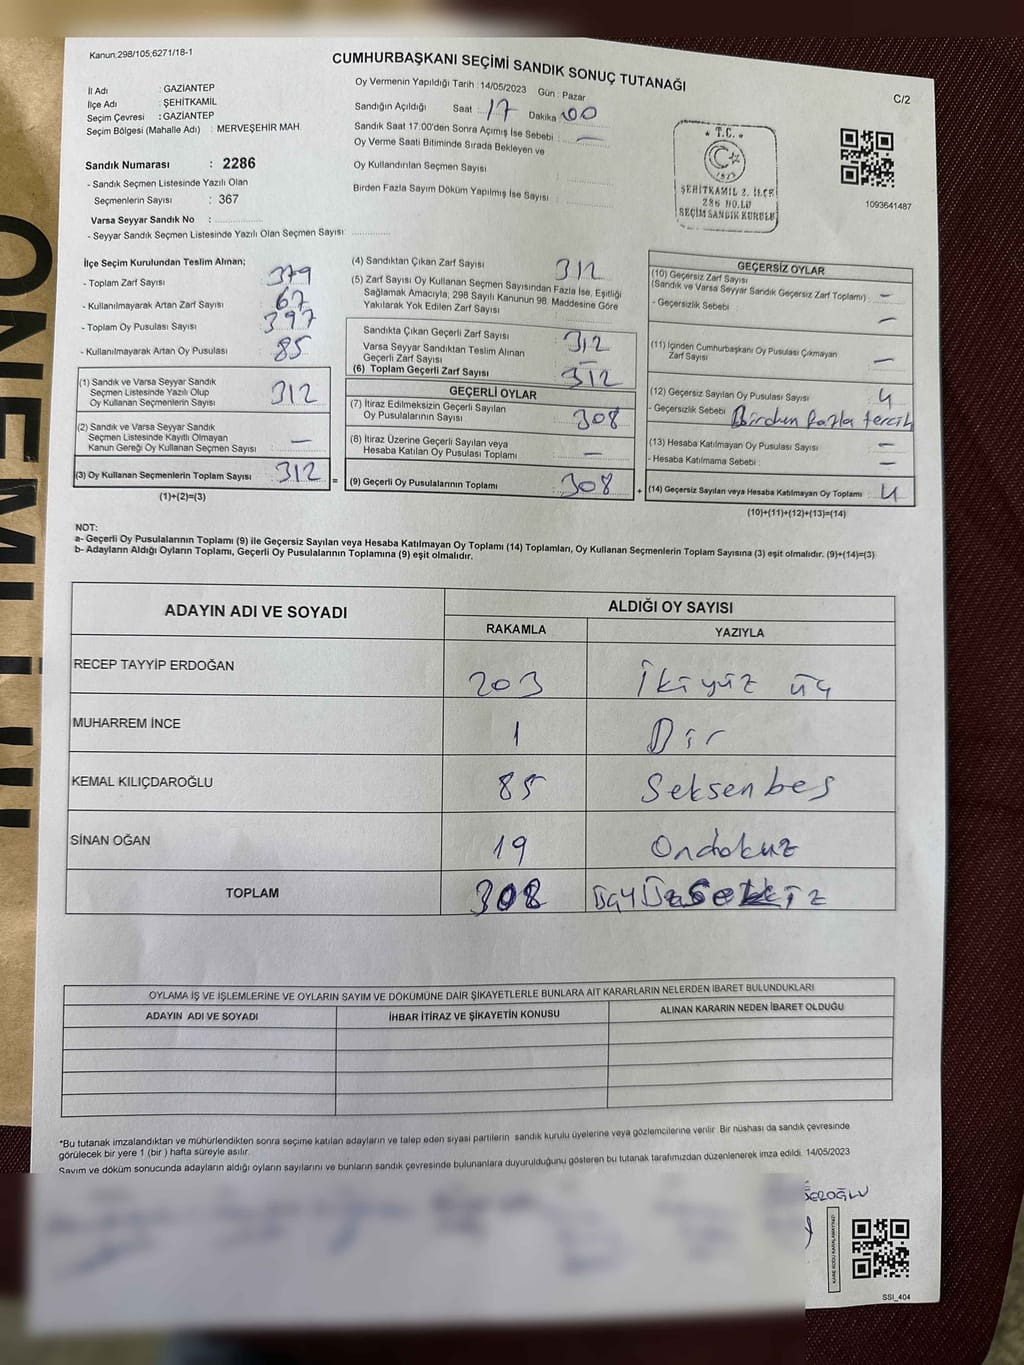 Kanun;298/105;6271/18-1
CUMHURBAŞKANI SEÇİMİ SANDIK SONUÇ TUTANAĞI
C/2
İl Adı : GAZİANTEP
İlçe Adı : ŞEHİTKAMİL
Seçim Çevresi : GAZİANTEP
Seçim Bölgesi (Mahalle Adı) : MERVEŞEHİR MAH.
Sandık Numarası : 2286
- Sandık Seçmen Listesinde Yazılı Olan
Seçmenlerin Sayısı : 367
Varsa Seyyar Sandık No :
- Seyyar Sandık Seçmen Listesinde Yazılı Olan Seçmen Sayısı:
Oy Vermenin Yapıldığı Tarih : 14/05/2023 Gün : Pazar
Sandığın Açıldığı Saat : 17 Dakika : 00
Sandık Saat 17.00'den Sonra Açımış İse Sebebi : —
Oy Verme Saati Bitiminde Sırada Bekleyen ve
Oy Kullandırılan Seçmen Sayısı
Birden Fazla Sayım Döküm Yapılmış İse Sayısı :
★ T.C. ★
ŞEHİTKAMİL 2. İLÇE
286 NO.LU
SEÇİM SANDIK KURULU
1093641487
İlçe Seçim Kurulundan Teslim Alınan;
- Toplam Zarf Sayısı : 379
- Kullanılmayarak Artan Zarf Sayısı : 67
- Toplam Oy Pusulası Sayısı : 397
- Kullanılmayarak Artan Oy Pusulası : 85
(1) Sandık ve Varsa Seyyar Sandık
Seçmen Listesinde Yazılı Olup
Oy Kullanan Seçmenlerin Sayısı : 312
(2) Sandık ve Varsa Seyyar Sandık
Seçmen Listesinde Kayıtlı Olmayan
Kanun Gereği Oy Kullanan Seçmen Sayısı : —
(3) Oy Kullanan Seçmenlerin Toplam Sayısı : 312
(1)+(2)=(3)
=
(4) Sandıktan Çıkan Zarf Sayısı : 312
(5) Zarf Sayısı Oy Kullanan Seçmen Sayısından Fazla İse, Eşitliği
Sağlamak Amacıyla, 298 Sayılı Kanunun 98. Maddesine Göre
Yakılarak Yok Edilen Zarf Sayısı
Sandıkta Çıkan Geçerli Zarf Sayısı : 312
Varsa Seyyar Sandıktan Teslim Alınan
Geçerli Zarf Sayısı : —
(6) Toplam Geçerli Zarf Sayısı : 312
GEÇERLİ OYLAR
(7) İtiraz Edilmeksizin Geçerli Sayılan
Oy Pusulalarının Sayısı : 308
(8) İtiraz Üzerine Geçerli Sayılan veya
Hesaba Katılan Oy Pusulası Toplamı : —
(9) Geçerli Oy Pusulalarının Toplamı : 308
+
GEÇERSİZ OYLAR
(10) Geçersiz Zarf Sayısı
(Sandık ve Varsa Seyyar Sandık Geçersiz Zarf Toplamı) : —
- Geçersizlik Sebebi : —
(11) İçinden Cumhurbaşkanı Oy Pusulası Çıkmayan
Zarf Sayısı : —
(12) Geçersiz Sayılan Oy Pusulası Sayısı : 4
- Geçersizlik Sebebi : Birden fazla tercih
(13) Hesaba Katılmayan Oy Pusulası Sayısı : —
- Hesaba Katılmama Sebebi : —
(14) Geçersiz Sayılan veya Hesaba Katılmayan Oy Toplamı : 4
(10)+(11)+(12)+(13)=(14)
NOT:
a- Geçerli Oy Pusulalarının Toplamı (9) ile Geçersiz Sayılan veya Hesaba Katılmayan Oy Toplamı (14) Toplamları, Oy Kullanan Seçmenlerin Toplam Sayısına (3) eşit olmalıdır. (9)+(14)=(3)
b- Adayların Aldığı Oyların Toplamı, Geçerli Oy Pusulalarının Toplamına (9) eşit olmalıdır.
ADAYIN ADI VE SOYADI
ALDIĞI OY SAYISI
RAKAMLA YAZIYLA
RECEP TAYYİP ERDOĞAN 203 İkiyüz üç
MUHARREM İNCE 1 Bir
KEMAL KILIÇDAROĞLU 85 Seksenbeş
SİNAN OĞAN 19 Ondokuz
TOPLAM 308 ÜçyüzSekiz
OYLAMA İŞ VE İŞLEMLERİNE VE OYLARIN SAYIM VE DÖKÜMÜNE DAİR ŞİKAYETLERLE BUNLARA AİT KARARLARIN NELERDEN İBARET BULUNDUKLARI
ADAYIN ADI VE SOYADI İHBAR İTİRAZ VE ŞİKAYETİN KONUSU ALINAN KARARIN NEDEN İBARET OLDUĞU
*Bu tutanak imzalandıktan ve mühürlendikten sonra seçime katılan adayların ve talep eden siyasi partilerin sandık kurulu üyelerine veya gözlemcilerine verilir. Bir nüshası da sandık çevresinde
görülecek bir yere 1 (bir ) hafta süreyle asılır.
Sayım ve döküm sonucunda adayların aldığı oyların sayılarını ve bunların sandık çevresinde bulunanlara duyurulduğunu gösteren bu tutanak tarafımızdan düzenlenerek imza edildi. 14/05/2023
SSİ_404